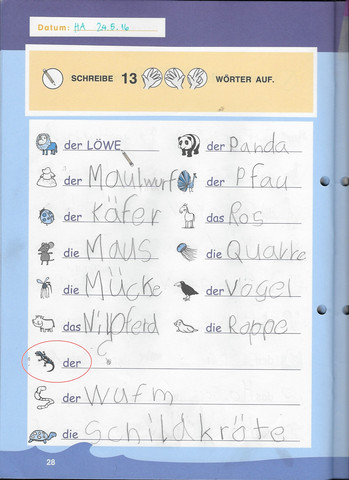 Datum: HA 24.5.16
SCHREIBE 13 WÖRTER AUF.
der LÖWE der Panda
der Maulwurf der Pfau
der Käfer das Ros
die Maus die Qualle
die Mücke der Vogel
das Nilpferd die Roppe
der
der Wurm
die Schildkröte
28